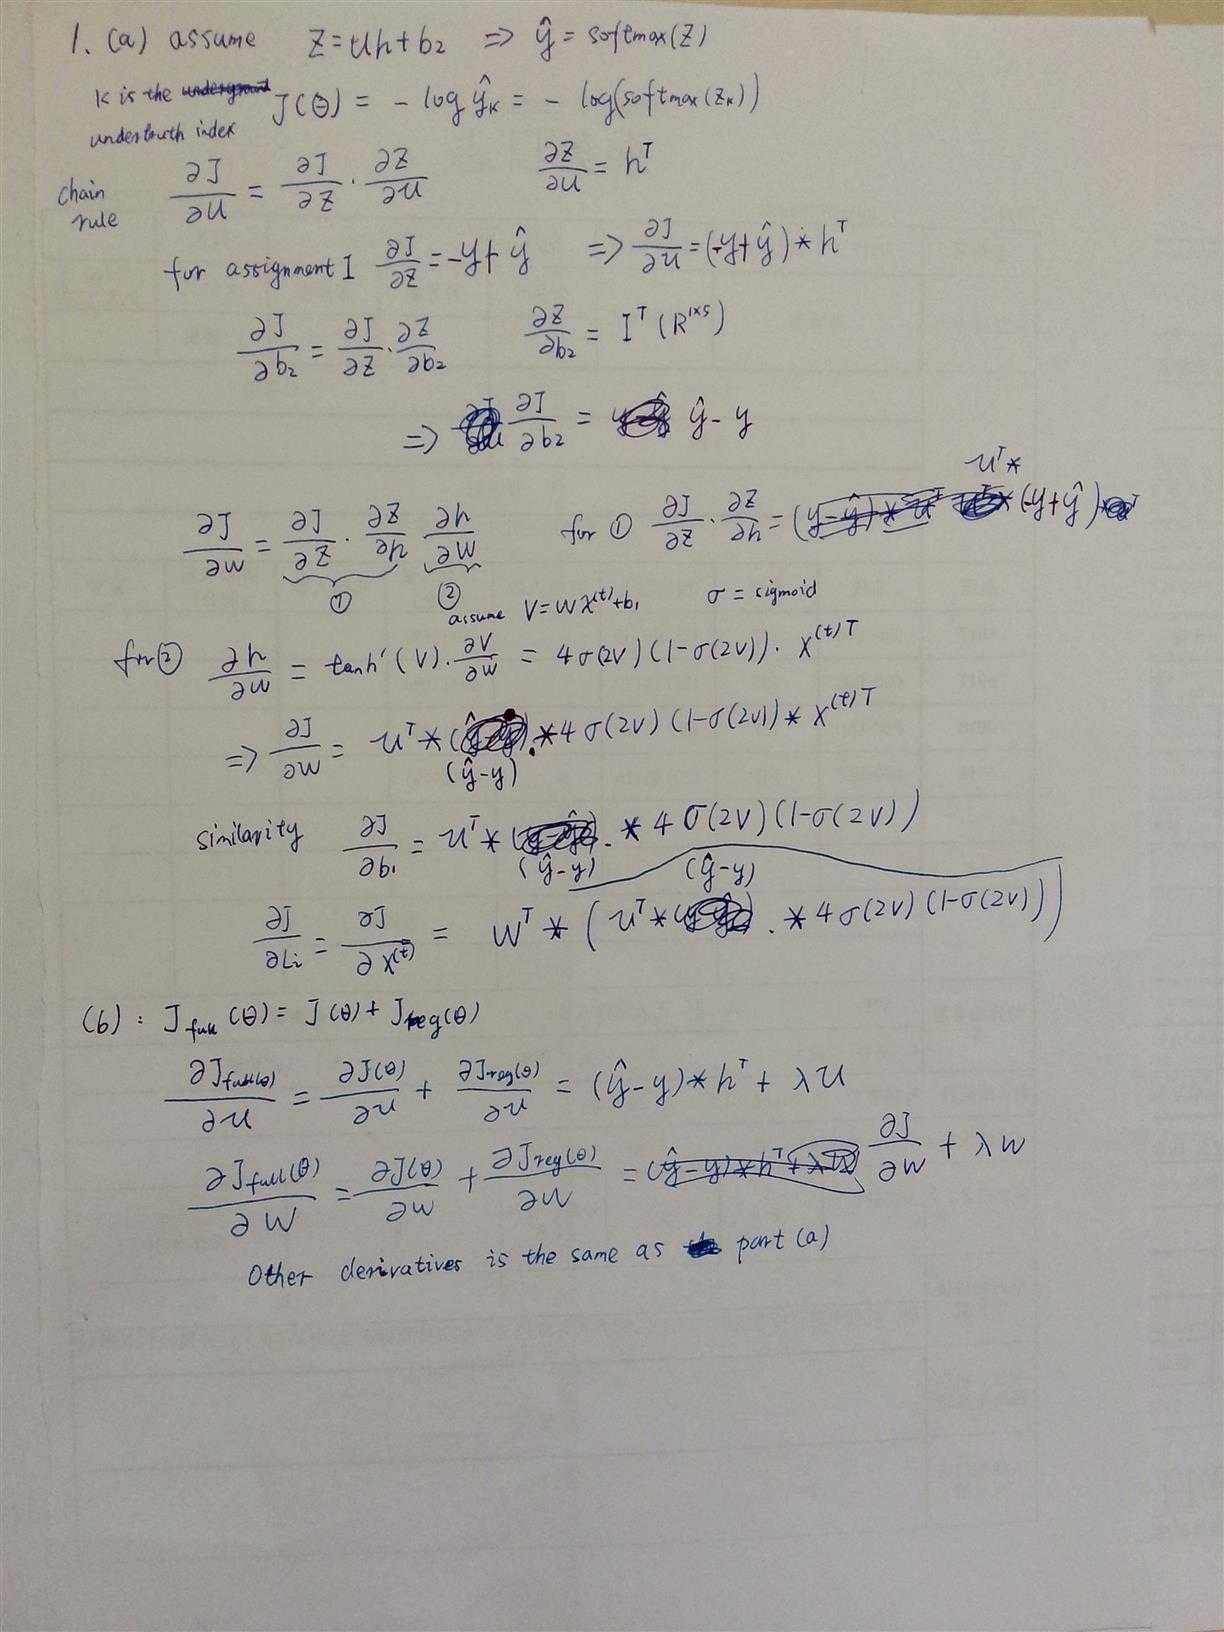 1. (a) assume Z = Uh + b₂ => ŷ = softmax(Z)
K is the undertruth index J(θ) = - log ŷₖ = - log(softmax(Zₖ))
chain rule ∂J/∂U = ∂J/∂Z · ∂Z/∂U ∂Z/∂U = hᵀ
for assignment I ∂J/∂Z = -y + ŷ => ∂J/∂U = (-y + ŷ) * hᵀ
∂J/∂b₂ = ∂J/∂Z · ∂Z/∂b₂ ∂Z/∂b₂ = Iᵀ (R¹ˣ⁵)
=> ∂J/∂b₂ = ŷ - y
∂J/∂W = ∂J/∂Z · ∂Z/∂h ∂h/∂W for ① ∂J/∂Z · ∂Z/∂h = Uᵀ * (-y + ŷ)
① ②
assume V = WX⁽ᵗ⁾ + b₁ σ = sigmoid
for ② ∂h/∂W = tanh'(V) · ∂V/∂W = 4σ(2V)(1-σ(2V)) · X⁽ᵗ⁾ᵀ
=> ∂J/∂W = Uᵀ * (ŷ-y) .* 4σ(2V)(1-σ(2V)) * X⁽ᵗ⁾ᵀ
similarity ∂J/∂b₁ = Uᵀ * (ŷ-y) .* 4σ(2V)(1-σ(2V))
∂J/∂Lᵢ = ∂J/∂X⁽ᵗ⁾ = Wᵀ * (Uᵀ * (ŷ-y) .* 4σ(2V)(1-σ(2V)))
(b) : J full (θ) = J(θ) + Jreg(θ)
∂Jfull(θ)/∂U = ∂J(θ)/∂U + ∂Jreg(θ)/∂U = (ŷ-y) * hᵀ + λU
∂Jfull(θ)/∂W = ∂J(θ)/∂W + ∂Jreg(θ)/∂W = ∂J/∂W + λW
Other derivatives is the same as part (a)